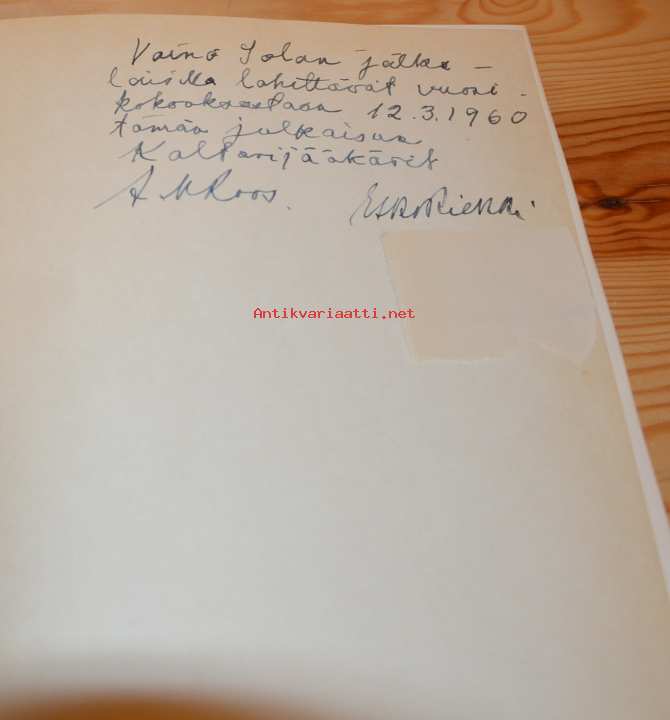 Väinö Solan jälke-
laisille lähettävät vuosi-
kokouksestaan 12.3.1960
tämän julkaisun
Kalterijääkärit
Esko Riekki
Antikvariaatti.net